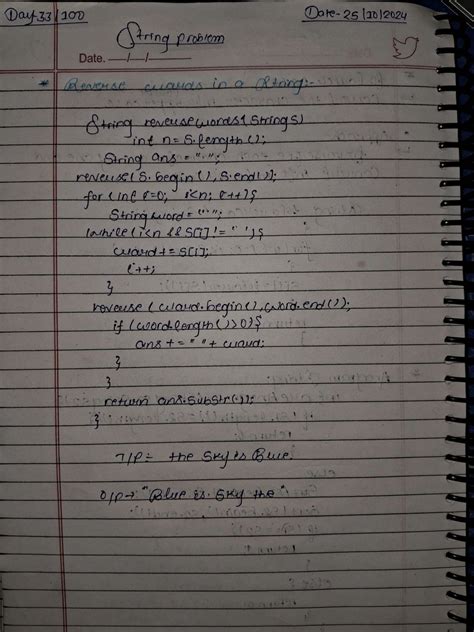 Day-33/100
Date-25/10/2024
String problem
Date. __/__/__
* Reverse words in a String:-
String reverse words(String S)
int n= S.length();
String ans = " ";
reverse(S.begin(), S.end());
for (int i=0; i<n; i++){
String word = " ";
while(i<n && S[i] != " "){
word += S[i];
i++;
}
reverse (word.begin(), word.end());
if (word.length()>0){
ans += " " + word;
}
}
return ans.substr();
}
I/P= the Sky is Blue
O/P→ "Blue is Sky the"